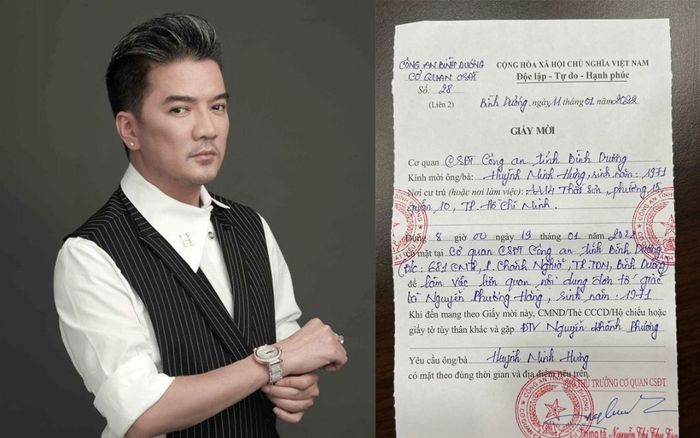 CÔNG AN BÌNH DƯƠNG
CƠ QUAN CSĐT
Số: 28
(Liên 2)
CỘNG HÒA XÃ HỘI CHỦ NGHĨA VIỆT NAM
Độc lập - Tự do - Hạnh phúc
Bình Dương, ngày 11 tháng 01 năm 2022
GIẤY MỜI
Cơ quan CSĐT Công an tỉnh Bình Dương
Kính mời ông/bà: Huỳnh Minh Hưng, sinh năm: 1971
Nơi cư trú (hoặc nơi làm việc): Thất Sơn, phường 15
quận 10, TP. Hồ Chí Minh.
Đúng 8 giờ 00 ngày 19 tháng 01 năm 2022
có mặt tại Cơ quan CSĐT Công an tỉnh Bình Dương
Đ/c: 681 CMT8, P. Chánh Nghĩa, TP. TDM, Bình Dương
để làm việc liên quan nội dung đơn tố giác
bà Nguyễn Phương Hằng, sinh năm: 1971
Khi đến mang theo Giấy mời này, CMND/Thẻ CCCD/Hộ chiếu hoặc
giấy tờ tùy thân khác và gặp ĐTV Nguyễn Khánh Phương
Yêu cầu ông/bà Huỳnh Minh Hưng
có mặt theo đúng thời gian và địa điểm nêu trên.
THỦ TRƯỞNG CƠ QUAN CSĐT
Nguyễn Thị Thu